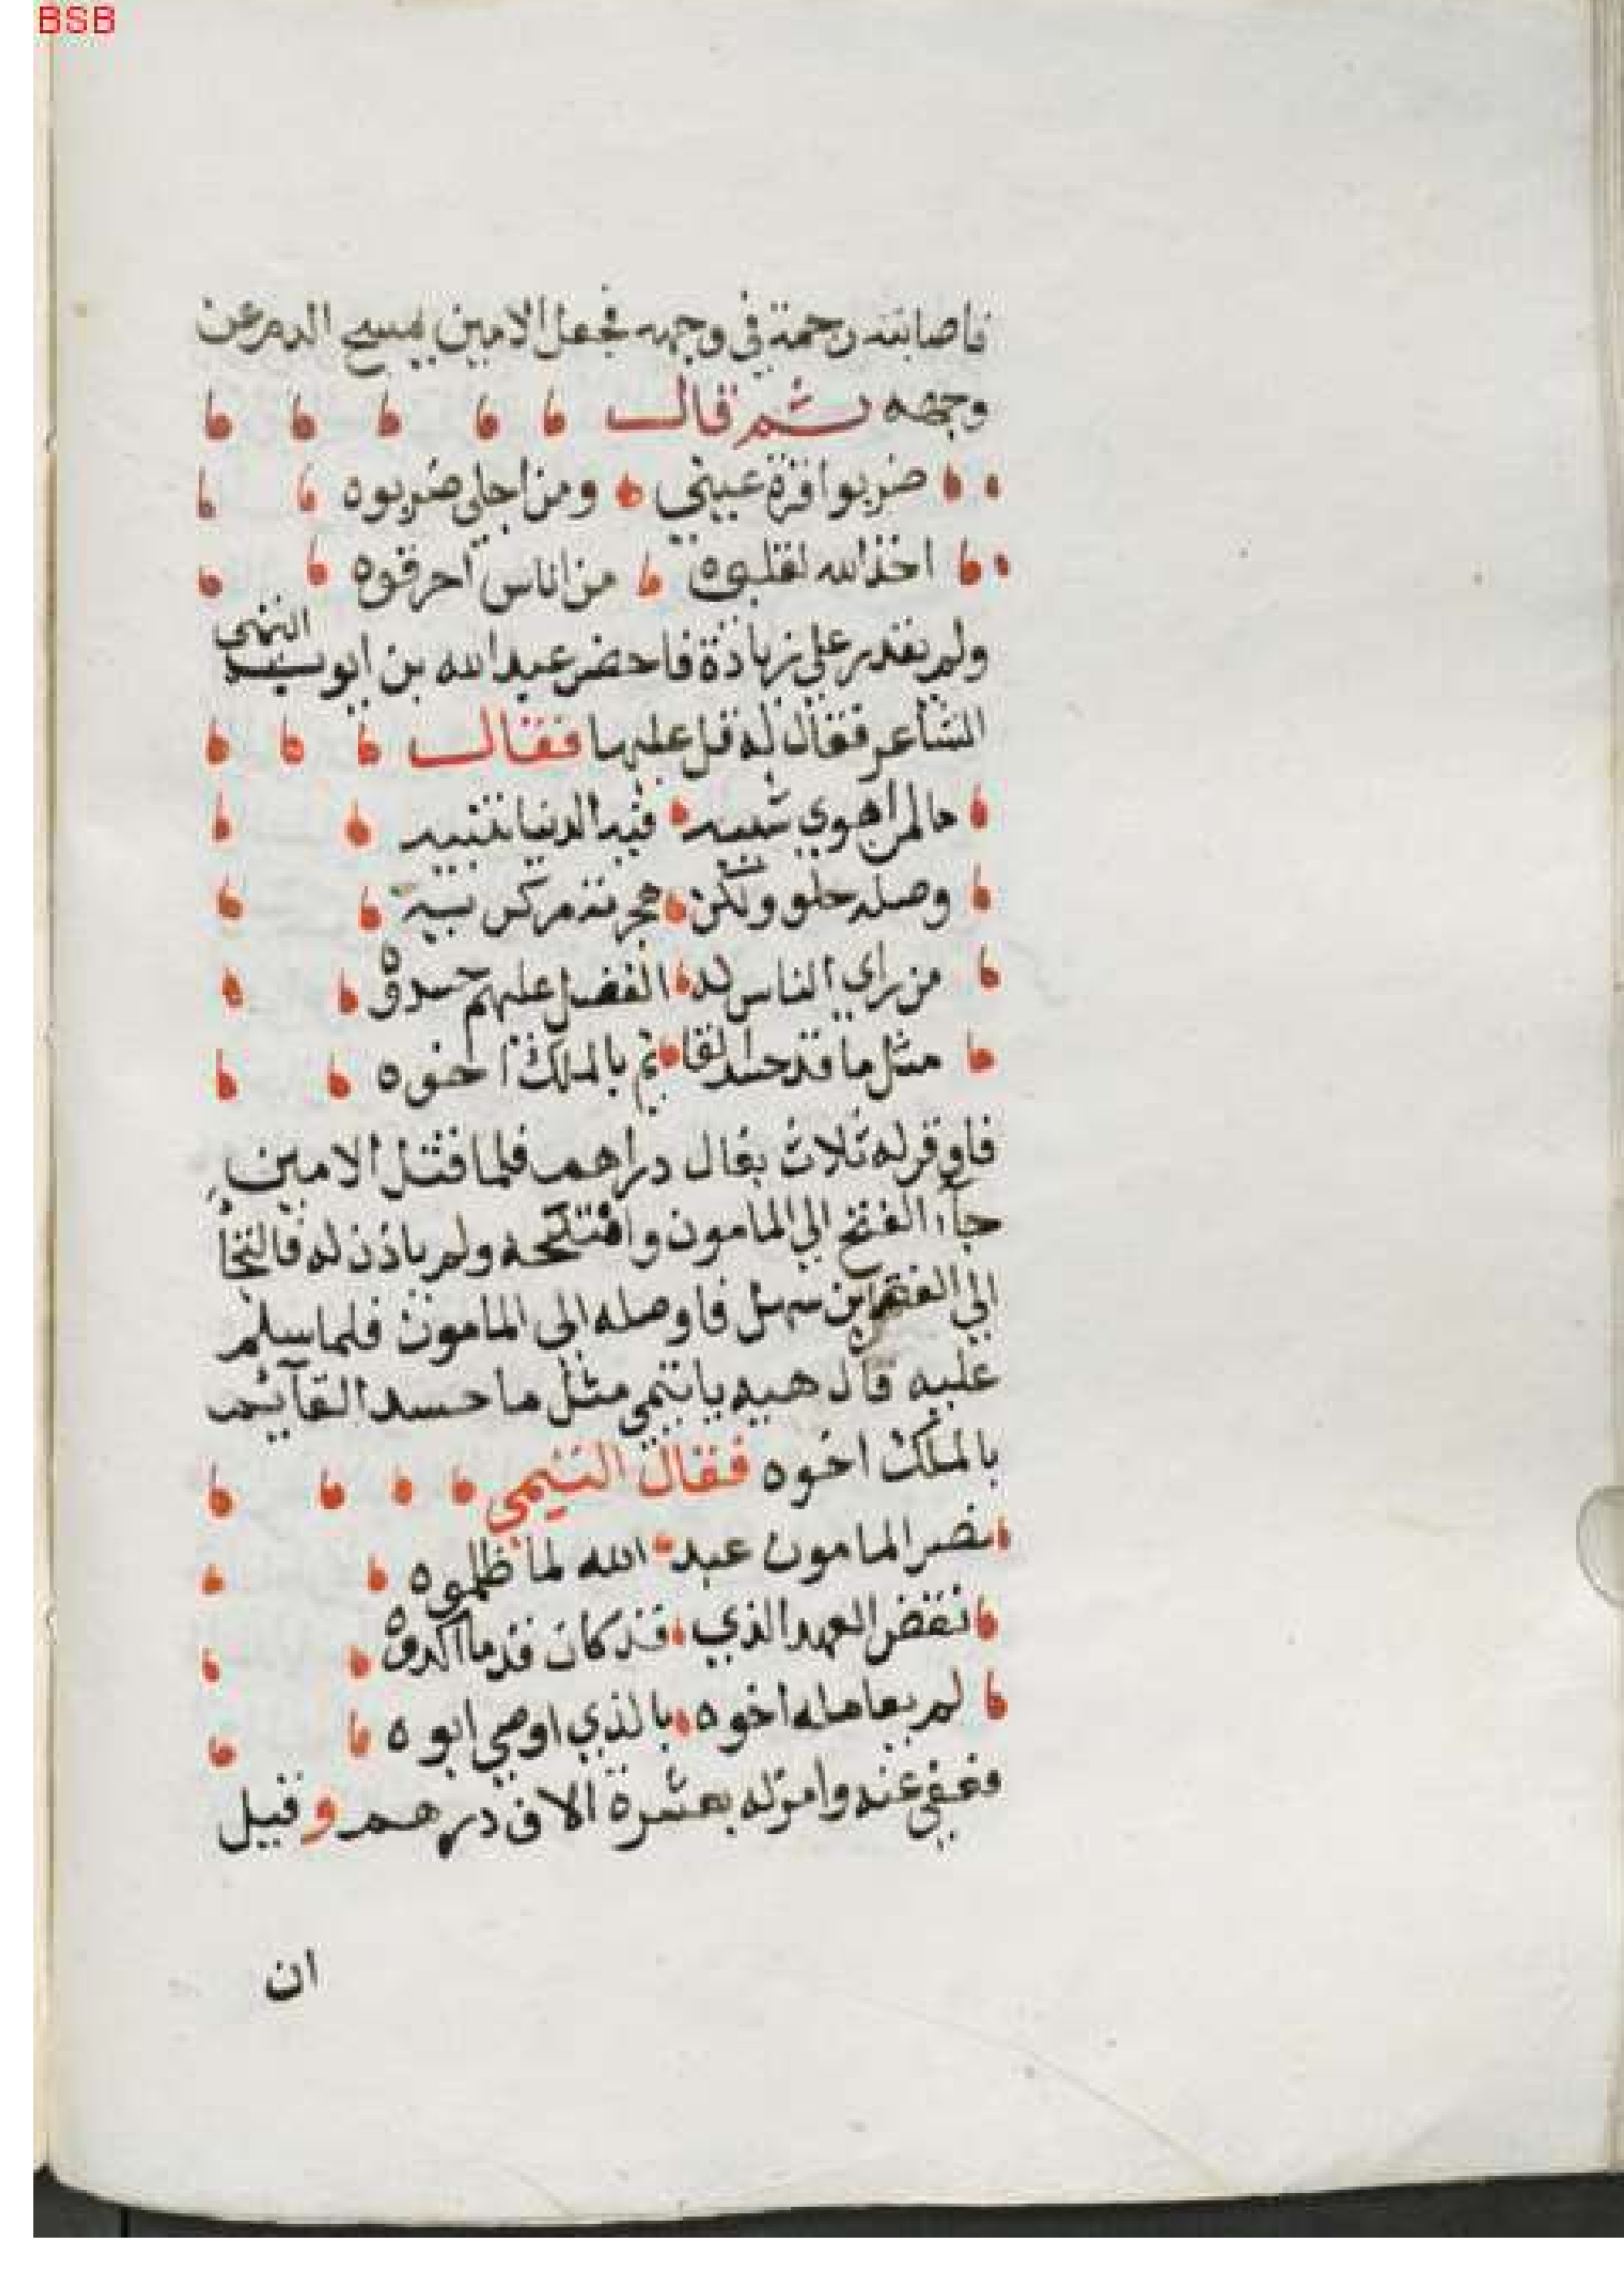 BSB
فاصابته رجمة في وجهه فجعل الامين يمسح الدم عن
وجهه ثم قال
ضربوا قرة عيني ومن اجلي ضربوه
اخذ الله لقلبي من اناس احرقوه
ولم يقدر على زيادة فاحضر عبد الله بن ايوب التيمي
الشاعر فقال له قل عليها فقال
ما لمن اهوي شبيه فبه الدنيا تتيه
وصله حلو ولكن هجره مر كريه
من راي الناس له الفضل عليهم حسدوه
مثل ما قد حسد القا ئم بالملك اخوه
فاوقر له ثلاث بغال دراهم فلما قتل الامين
جاء الي المامون وامتدحه ولم ياذن له فالتجا
الي بن سهل فاوصله الى المامون فلما سلم
عليه قال هيه يا تيمي مثل ما حسد القآئم
بالملك اخوه فقال التيمي
نصر المامون عبد الله لما ظلموه
نقض العهد الذي قد كان قدما اكدوه
لم يعامله اخوه بالذي اوصي ابوه
فعفي عنه وامر له بعشرة الاف درهم وقيل
ان